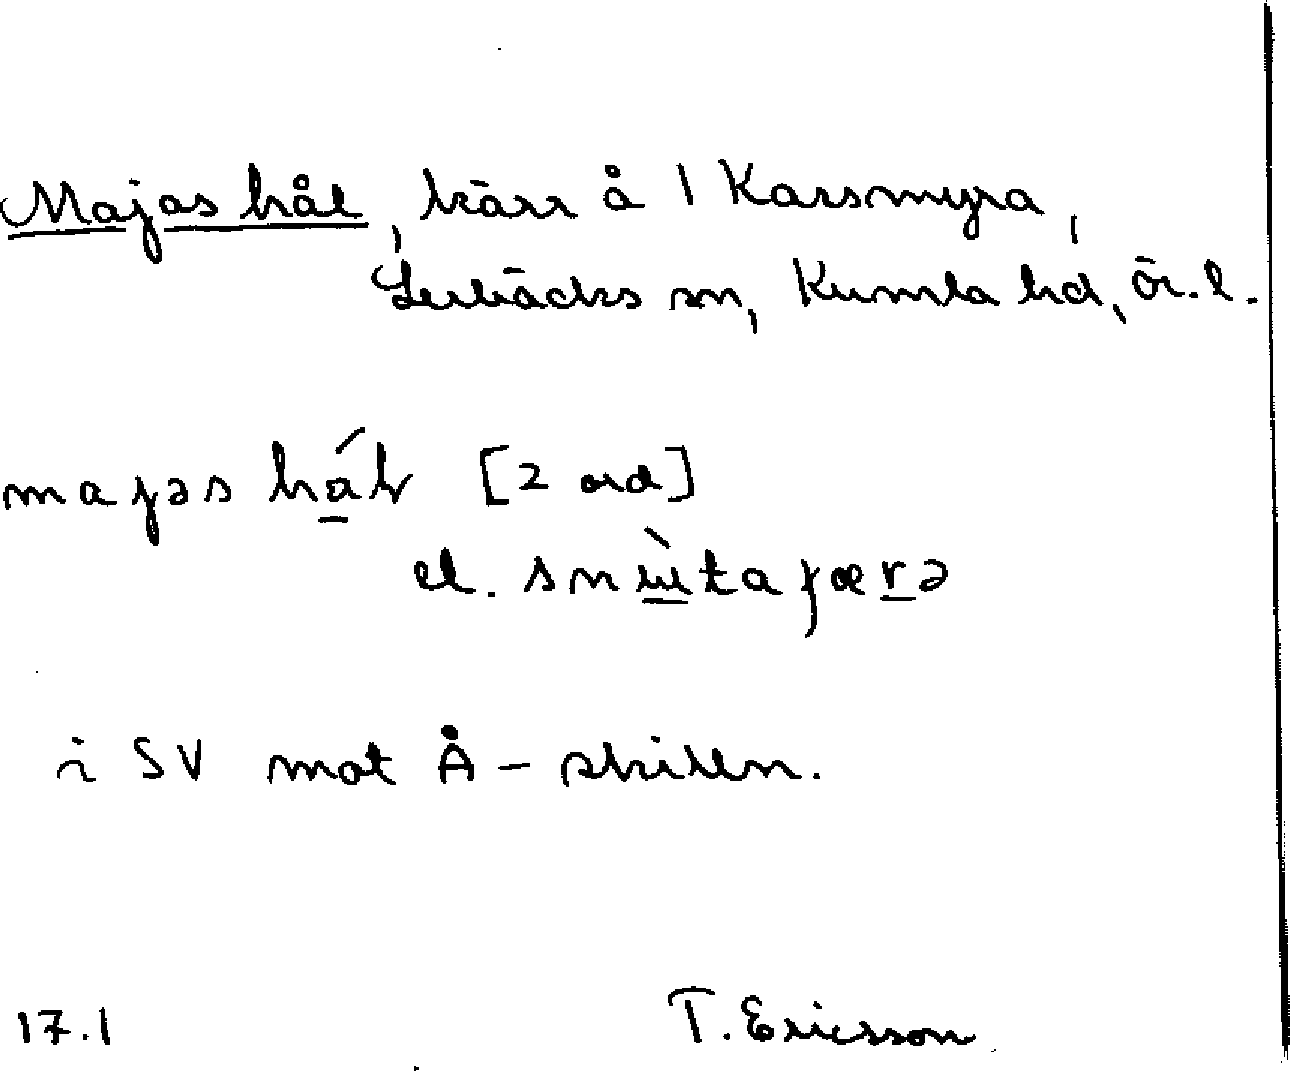 Majas hål, kärr å 1 Karsmyra,
Lerbäcks sn, Kumla hd, Ör. l.
majəs hál [2 ord]
el. snùtajærə
i SV mot Å-skilln.
17.1 T. Ericsson